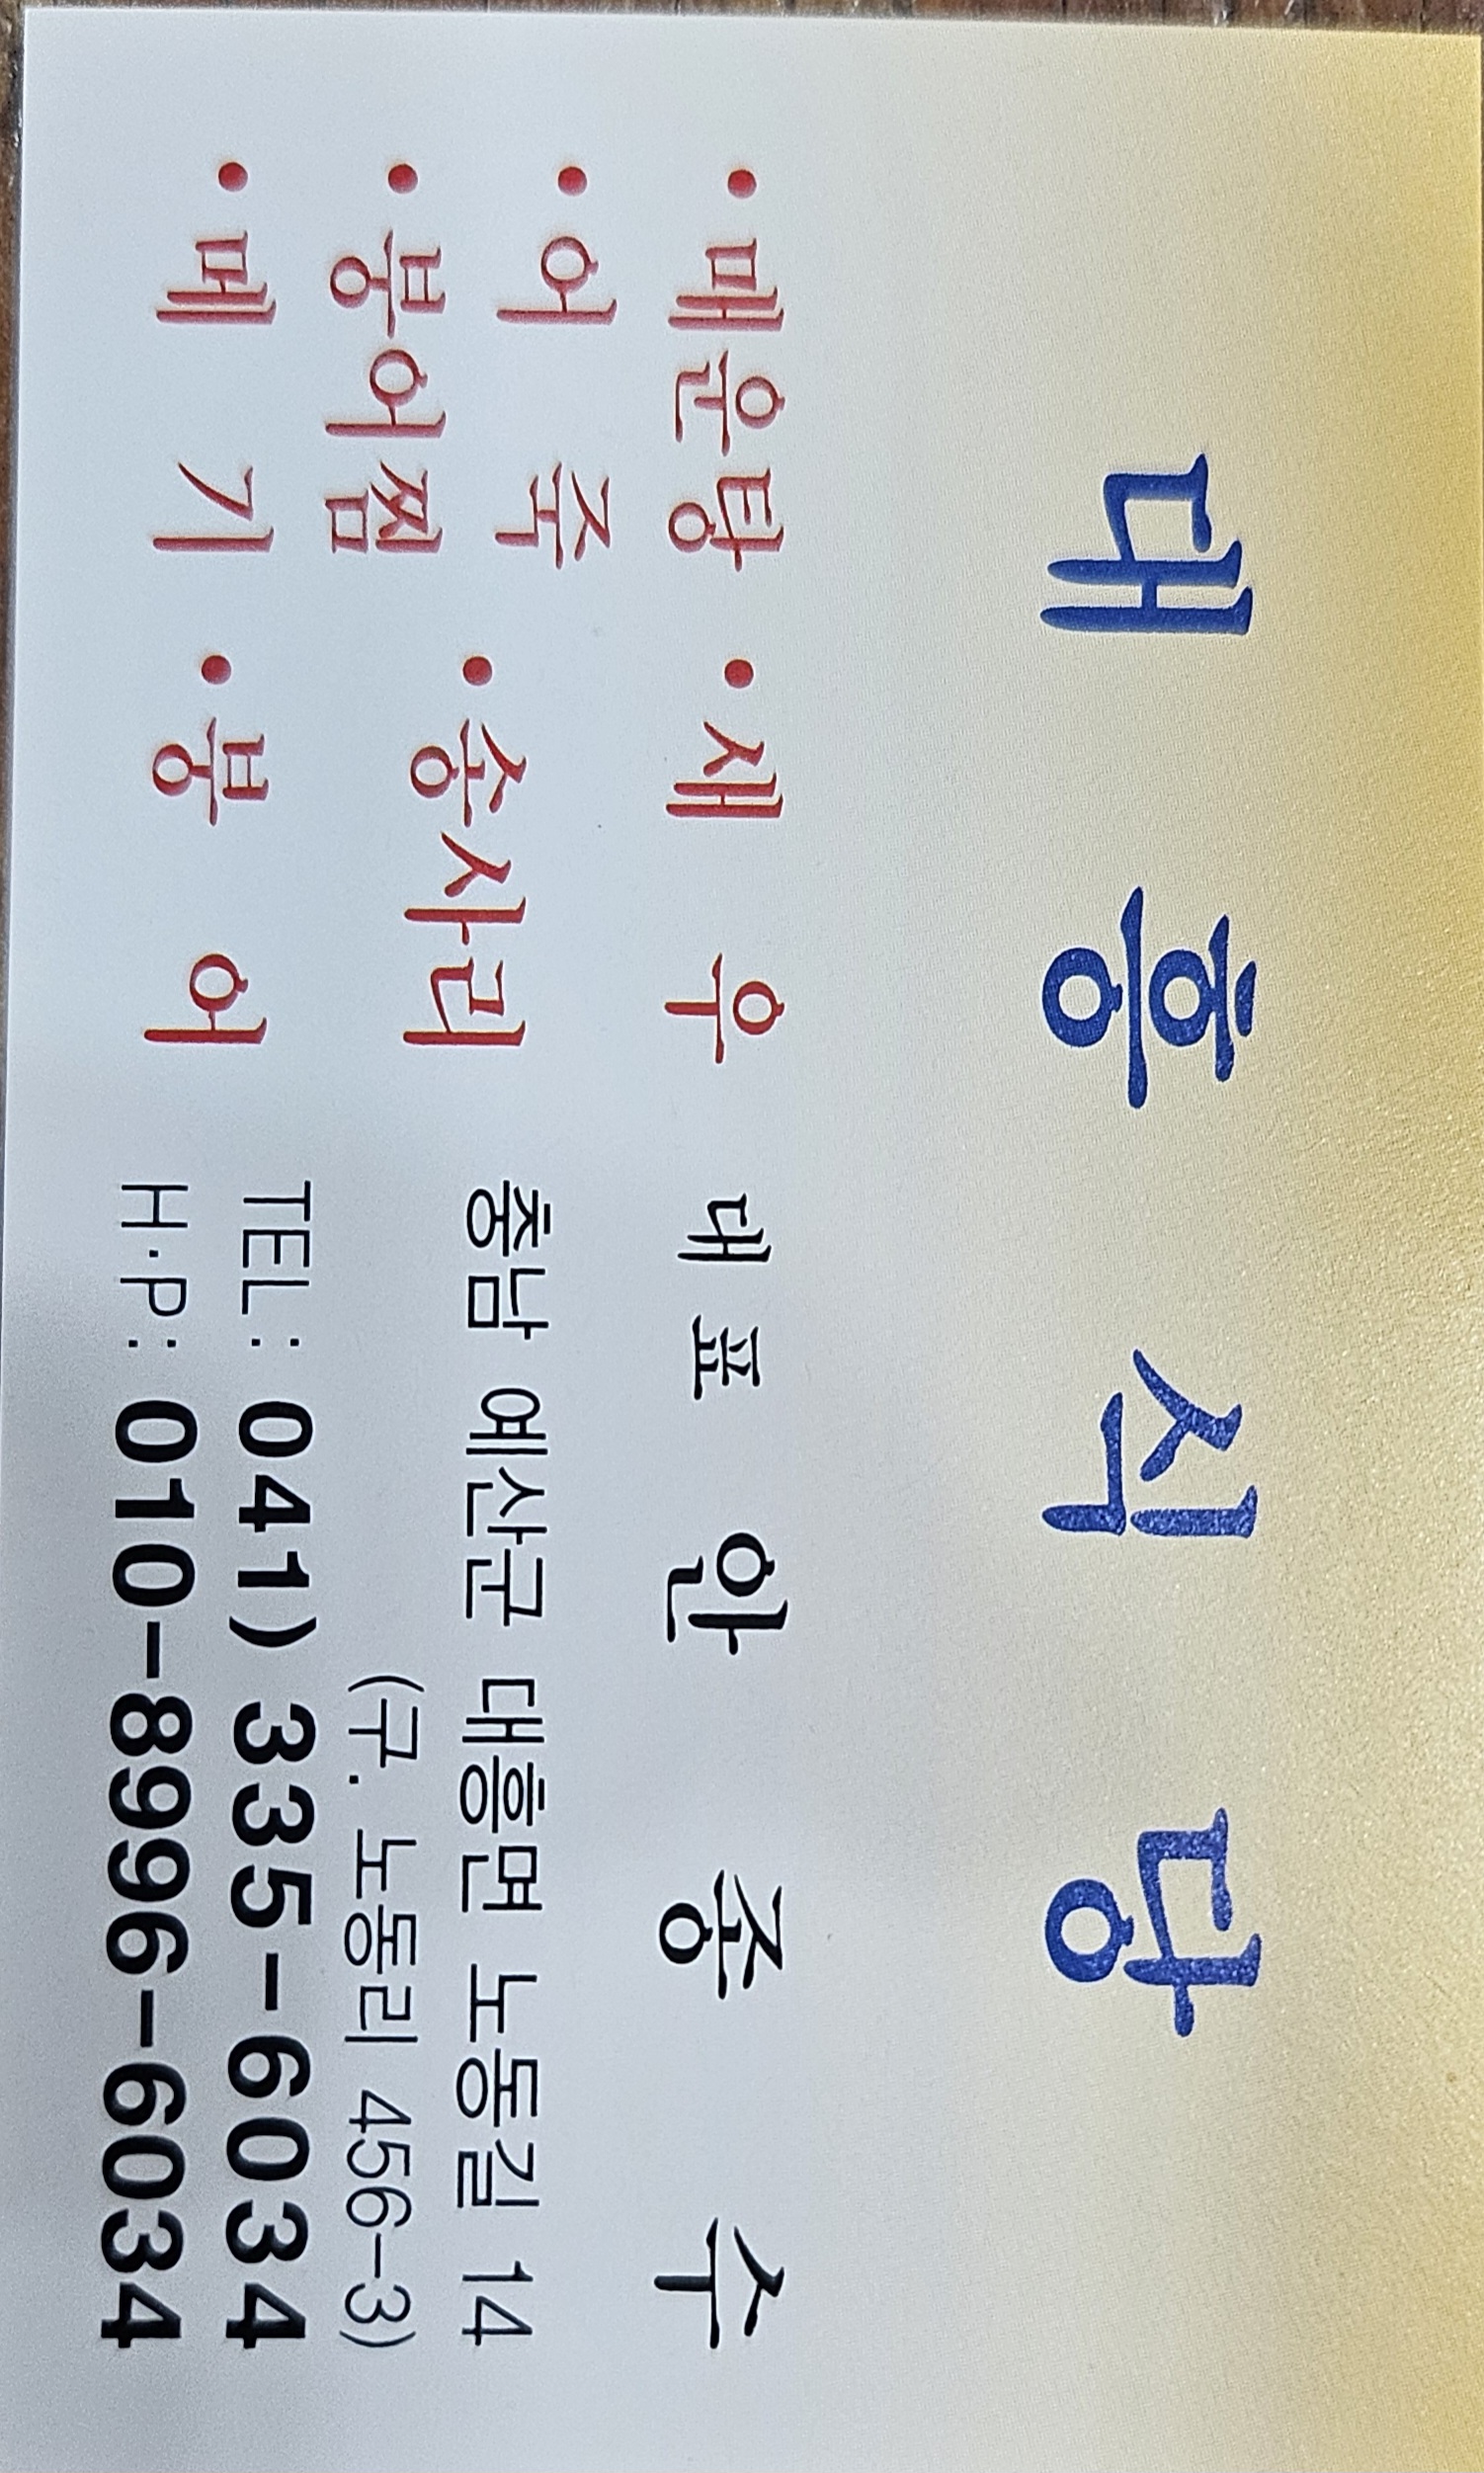 대흥식당
• 매운탕 • 새우
• 어죽
• 붕어찜 • 송사리
• 메기 • 붕어
대표 안종수
충남 예산군 대흥면 노동길 14
(구. 노동리 456-3)
TEL: 041) 335-6034
H·P: 010-8996-6034